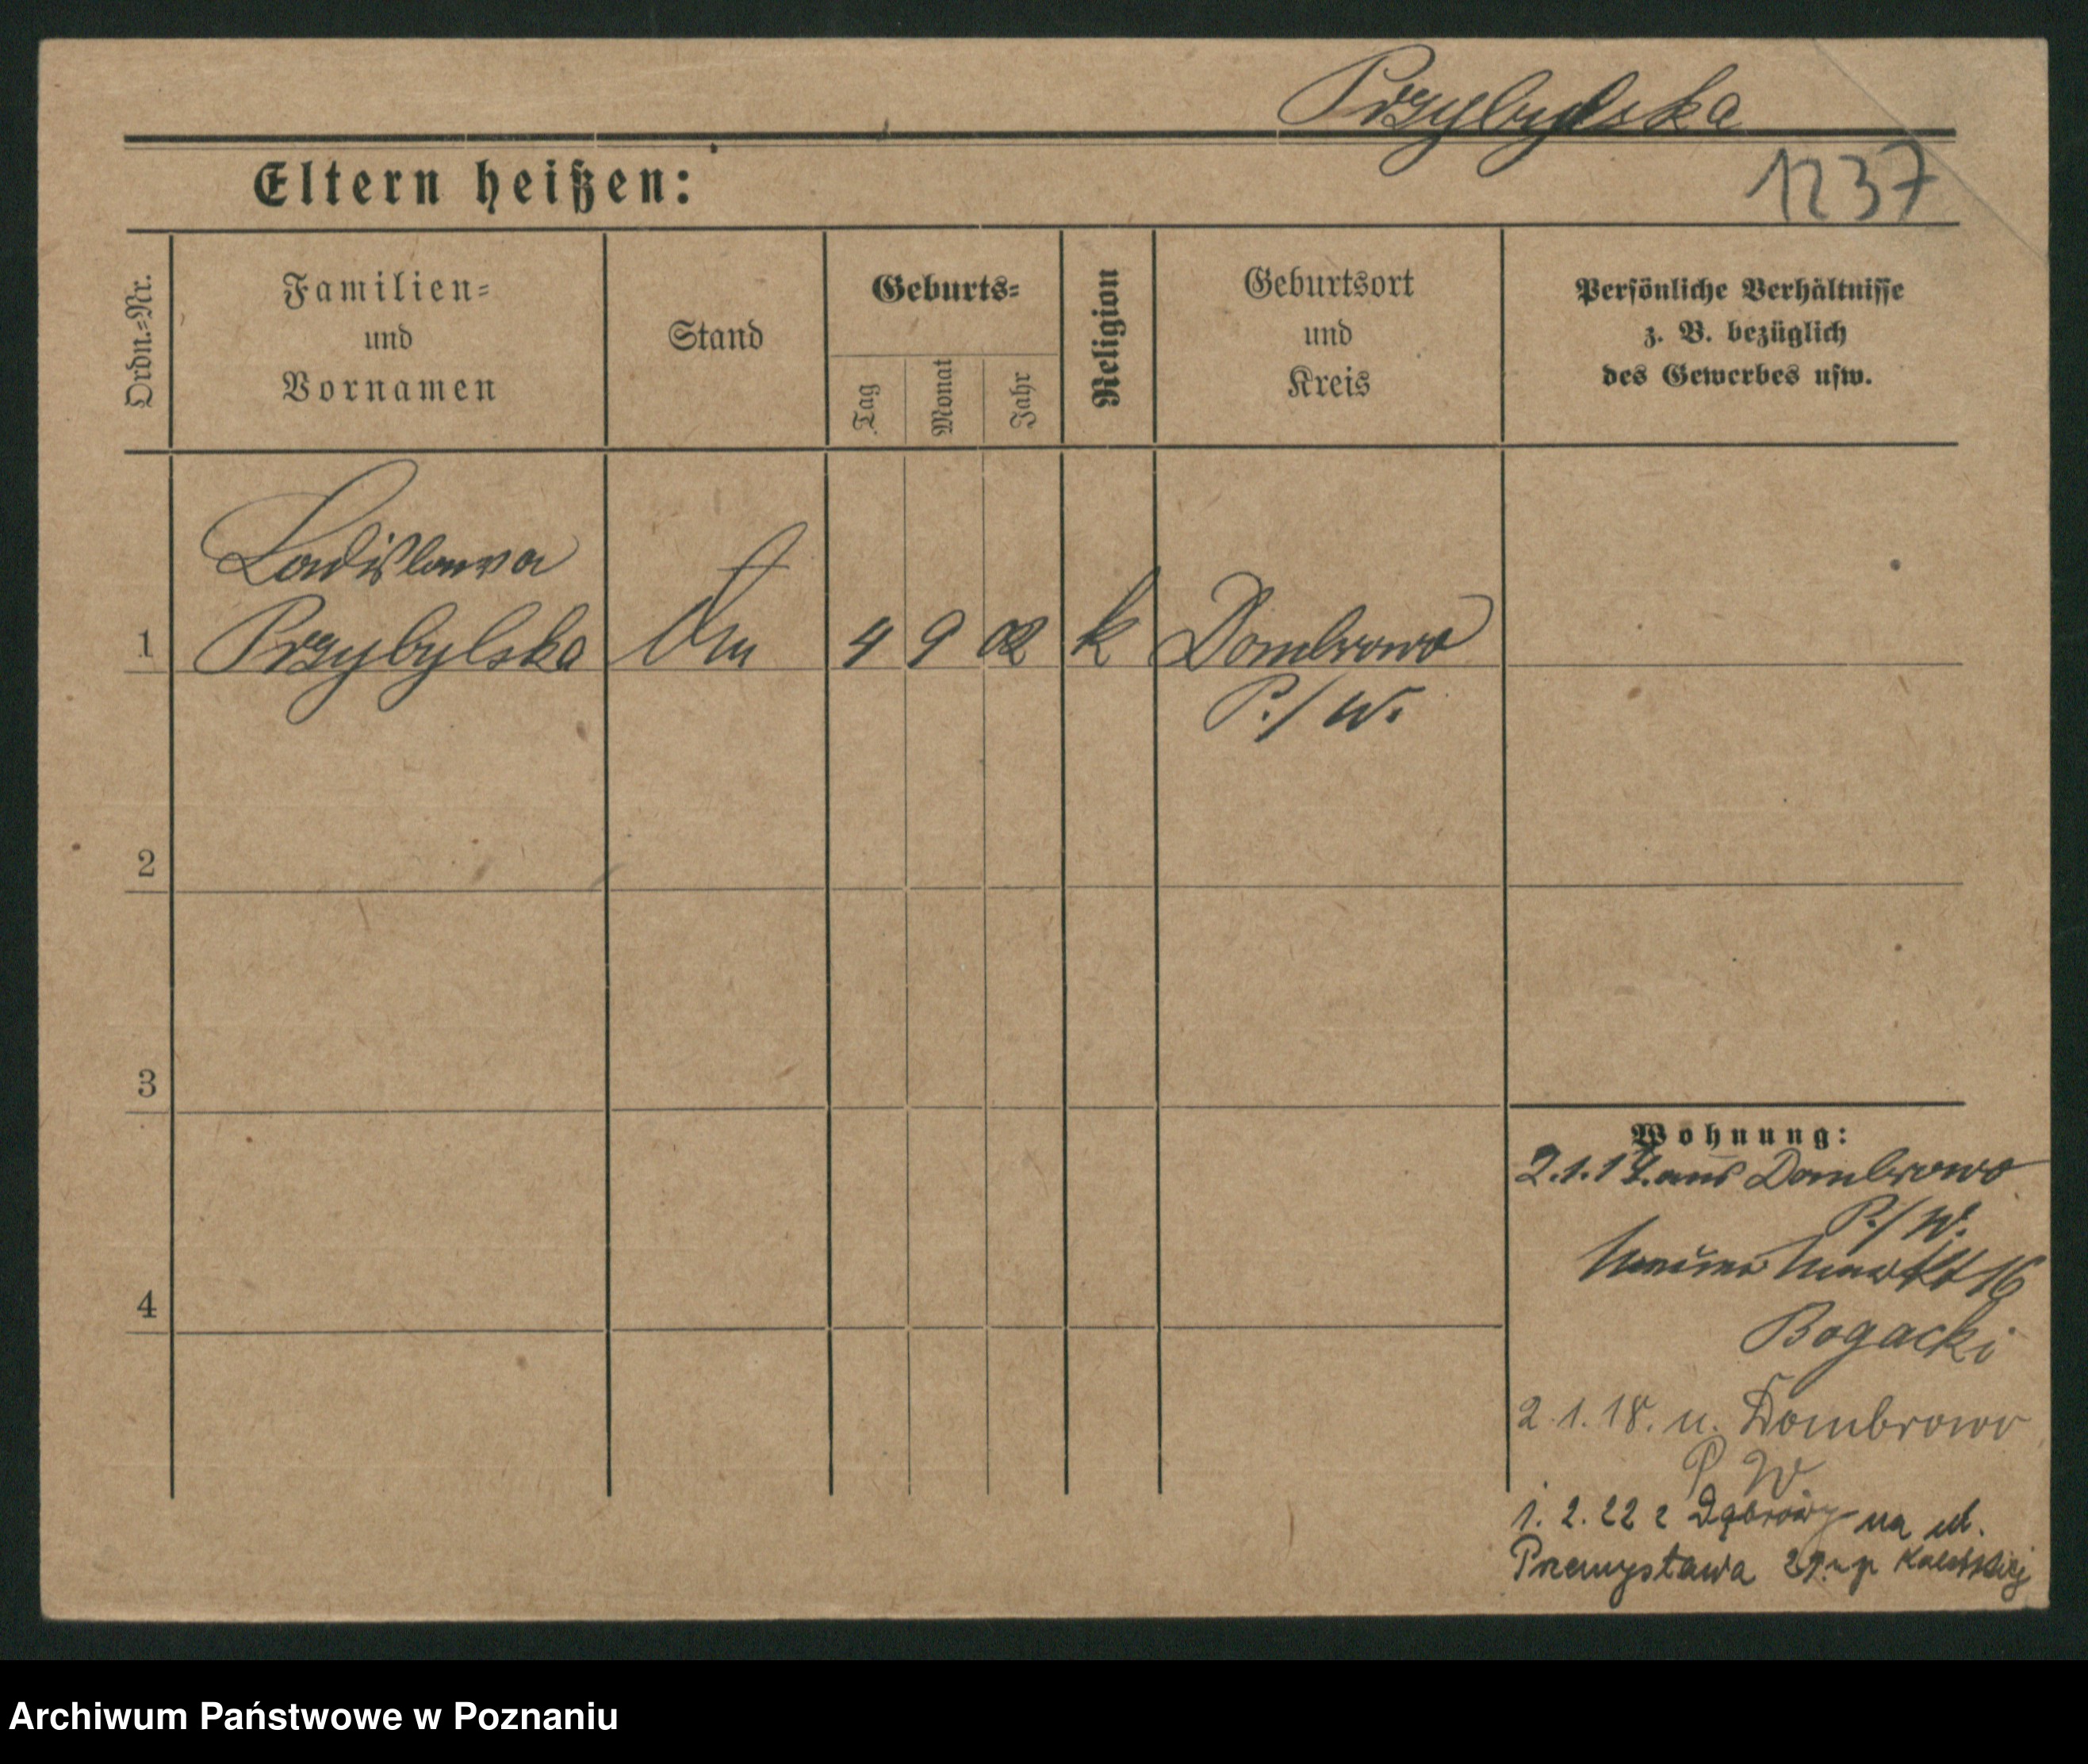 Przybylska
Eltern heißen:
1237
Ordn.=Nr.
Familien=
und
Vornamen
Stand
Geburts=
Tag
Monat
Jahr
Religion
Geburtsort
und
Kreis
Persönliche Verhältnisse
z. B. bezüglich
des Gewerbes usw.
Ladislawa
1 Przybylska 4 9 02 k Dombrowo
P./W.
2
3
4
Wohnung:
2.1.17. aus Dombrowo
P./W.
Markt 16
Bogacki
2.1.18. n. Dombrowo
P W
1. 2. 22 z Dąbrowy na ul.
Przemysława 29
Archiwum Państwowe w Poznaniu